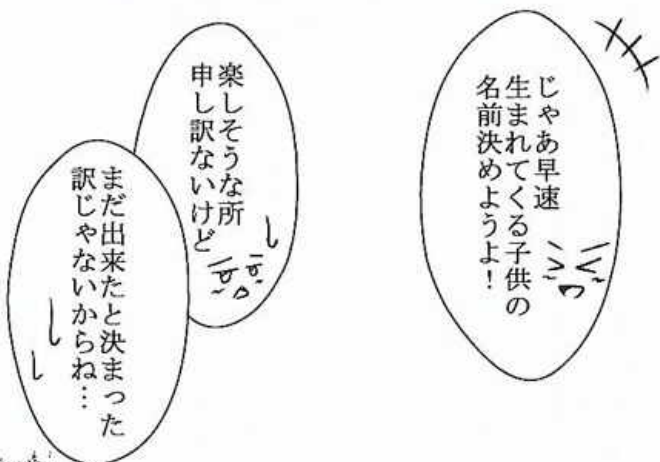 じゃあ早速
生まれてくる子供の
名前決めようよ！
楽しそうな所
申し訳ないけど
まだ出来たと決まった
訳じゃないからね…